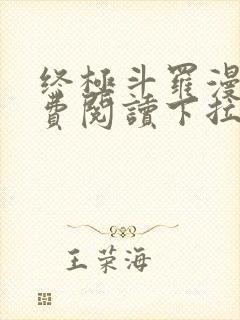 终極斗羅漫
费閱讀下拉
王荣海